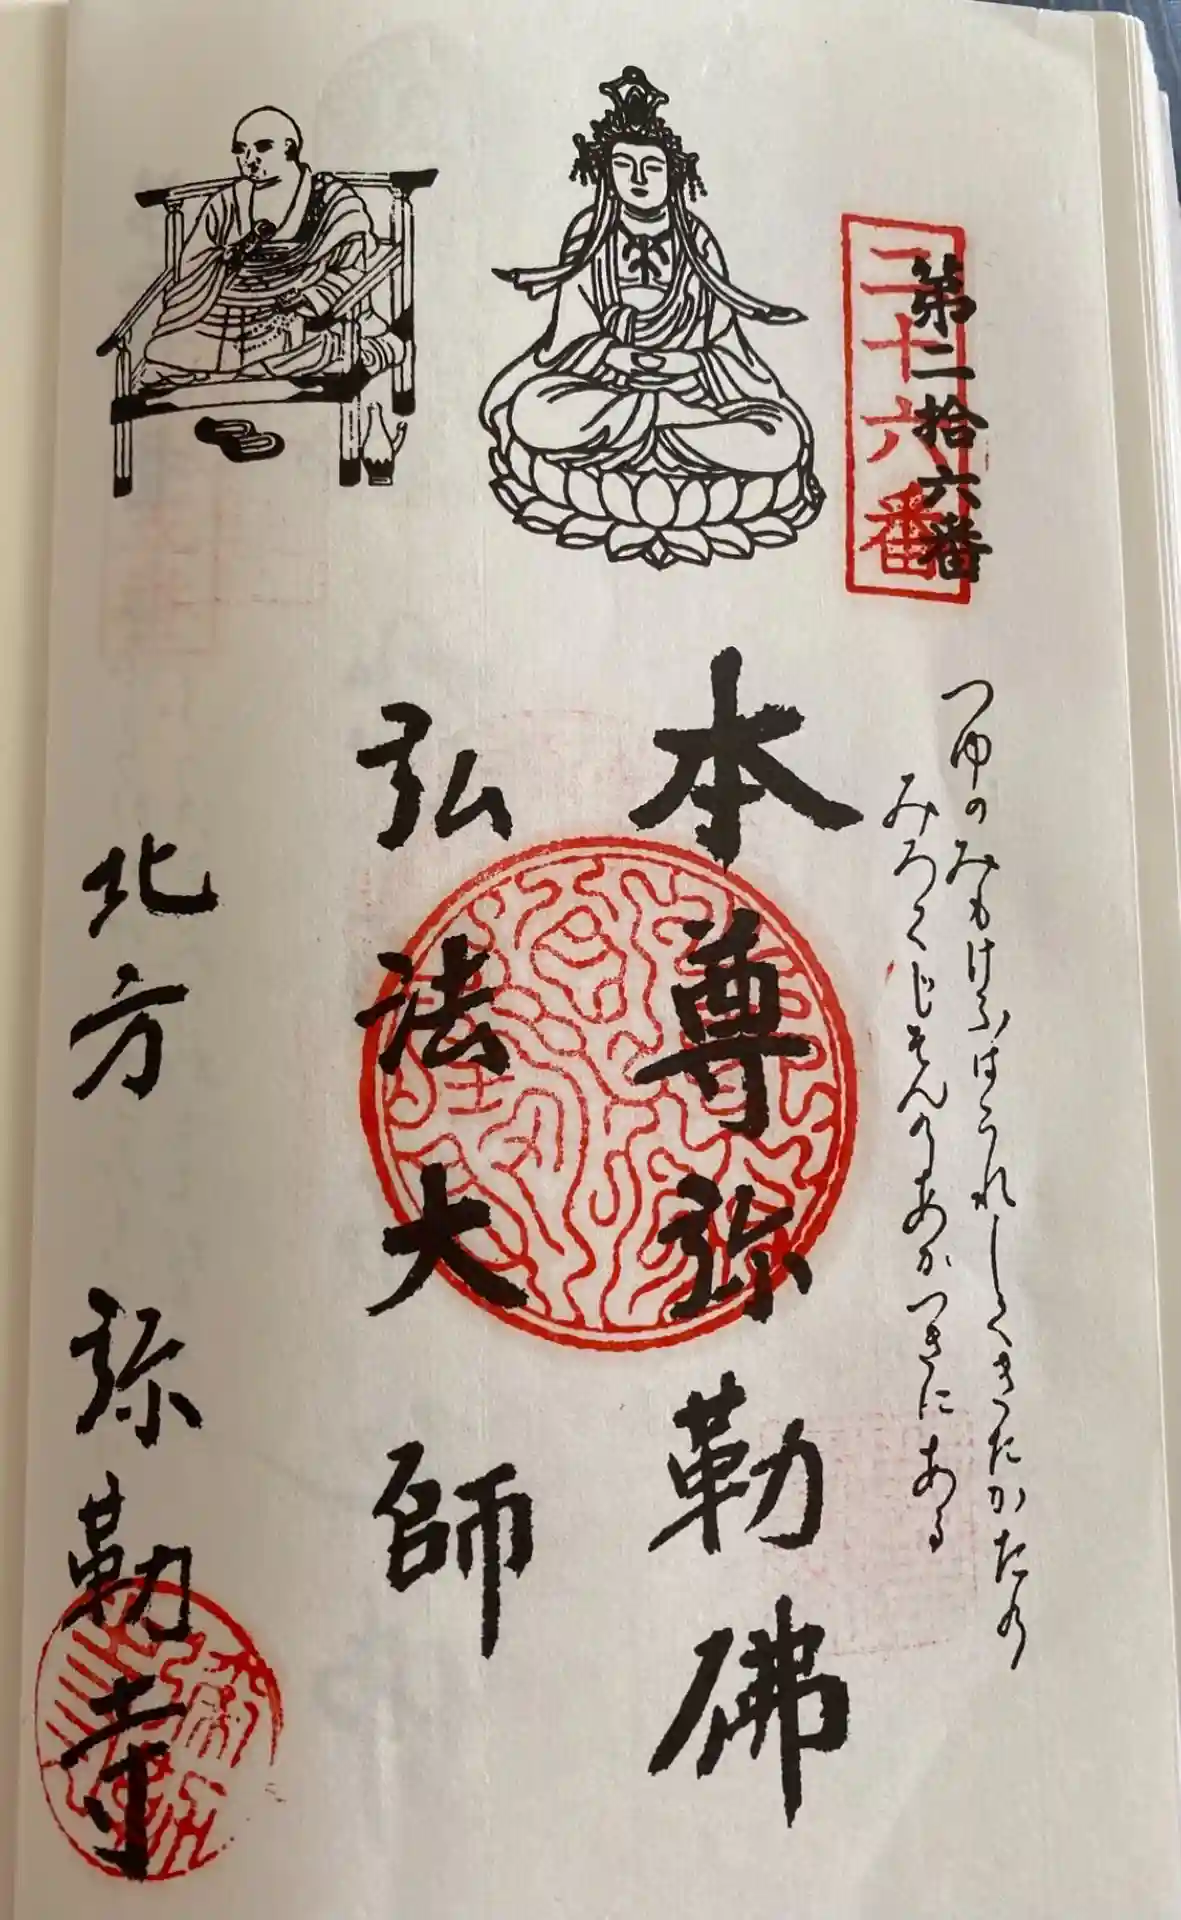 第二拾六番
二十六番
つゆのみもけふはうれしくきたかたの
みろくじそんのあかつきにあふ
本尊弥勒佛
弘法大師
北方 弥勒寺